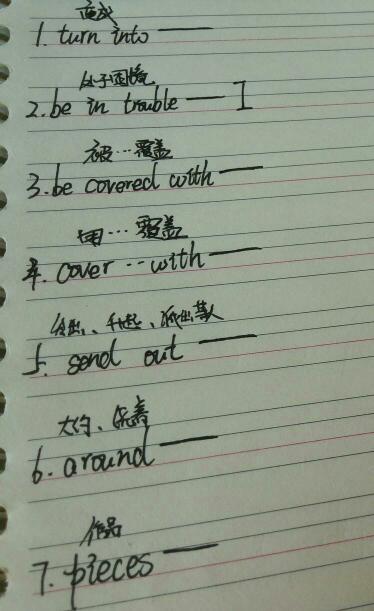 变成
1. turn into ——
处于困境
2. be in trouble ——
被…覆盖
3. be covered with ——
用…覆盖
4. cover … with ——
、派出某人
5. send out ——
大约、
6. around ——
作品
7. pieces ——